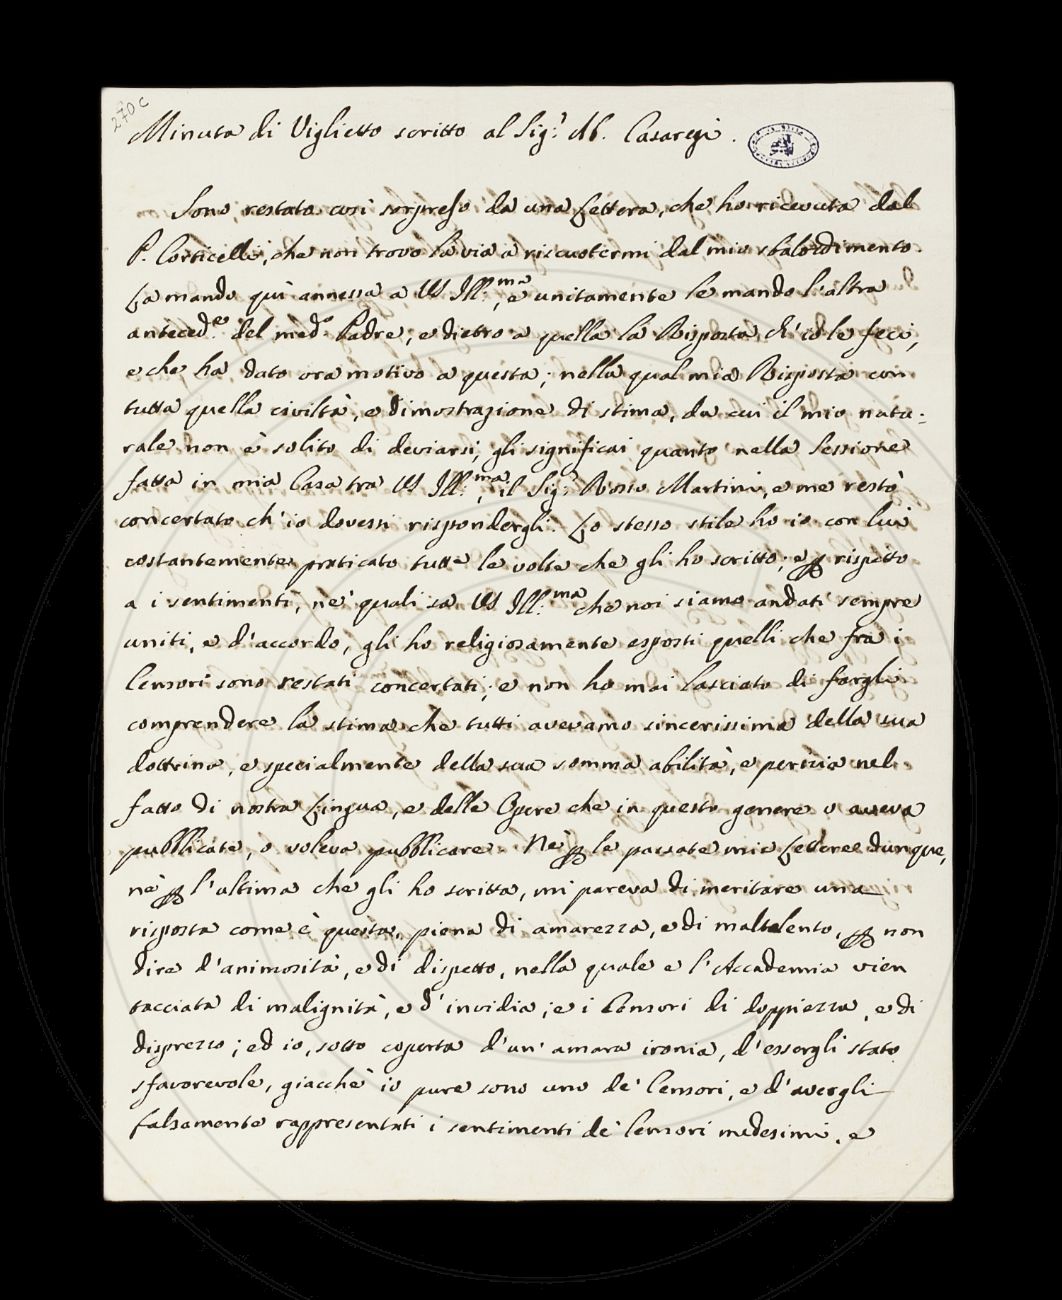 270c
Minuta di Viglietto scritto al Sig.r Ab. Casaregi.
Sono restata così sorpreso da una Lettera, che ho ricevuta dal
P. Corticelli, che non trovo la via a riscuotermi dal mio sbalordimento.
La mando quì annessa a VS Ill.ma, e unitamente le mando l'altra
anteced.e del med.o Padre, e dietro a quella la Risposta ch'io le feci,
e che ha dato ora motivo a questa; nella qual mia Risposta con
tutta quella civiltà, e dimostrazione di stima, da cui il mio natu-
rale non è solito di deviarsi, gli significai quanto nella Sessione
fatta in mia Casa tra VS Ill.ma, il Sig.r Rosso Martini, e me restò
concertato ch'io dovessi rispondergli. Lo stesso stile ho io con lui
costantemente praticato tutte le volte che gli ho scritto; e per rispetto
a i sentimenti, ne' quali sa VS Ill.ma che noi siamo andati sempre
uniti, e d'accordo, gli ho religiosamente esposti quelli che fra i
Censori sono restati concertati; e non ho mai lasciato di fargli
comprendere la stima che tutti avevamo sincerissima della sua
dottrina, e specialmente della sua somma abilità, e perizia nel
fatto di nostra Lingua, e delle Opere che in questo genere o aveva
pubblicate, o voleva pubblicare. Nè per le passate mie Lettere dunque,
nè per l'ultima che gli ho scritta, mi pareva di meritare una
risposta come è questa, piena di amarezza, e di maltalento, per non
dire d'animosità, e di dispetto, nella quale e l'Accademia vien
tacciata di malignità, e d'invidia; e i Censori di doppiezza, e di
disprezzo; ed io, sotto coperta d'un'amara ironia, d'essergli stato
sfavorevole, giacchè io pure sono uno de' Censori, e d'avergli
falsamente rappresentati i sentimenti de' Censori medesimi, e